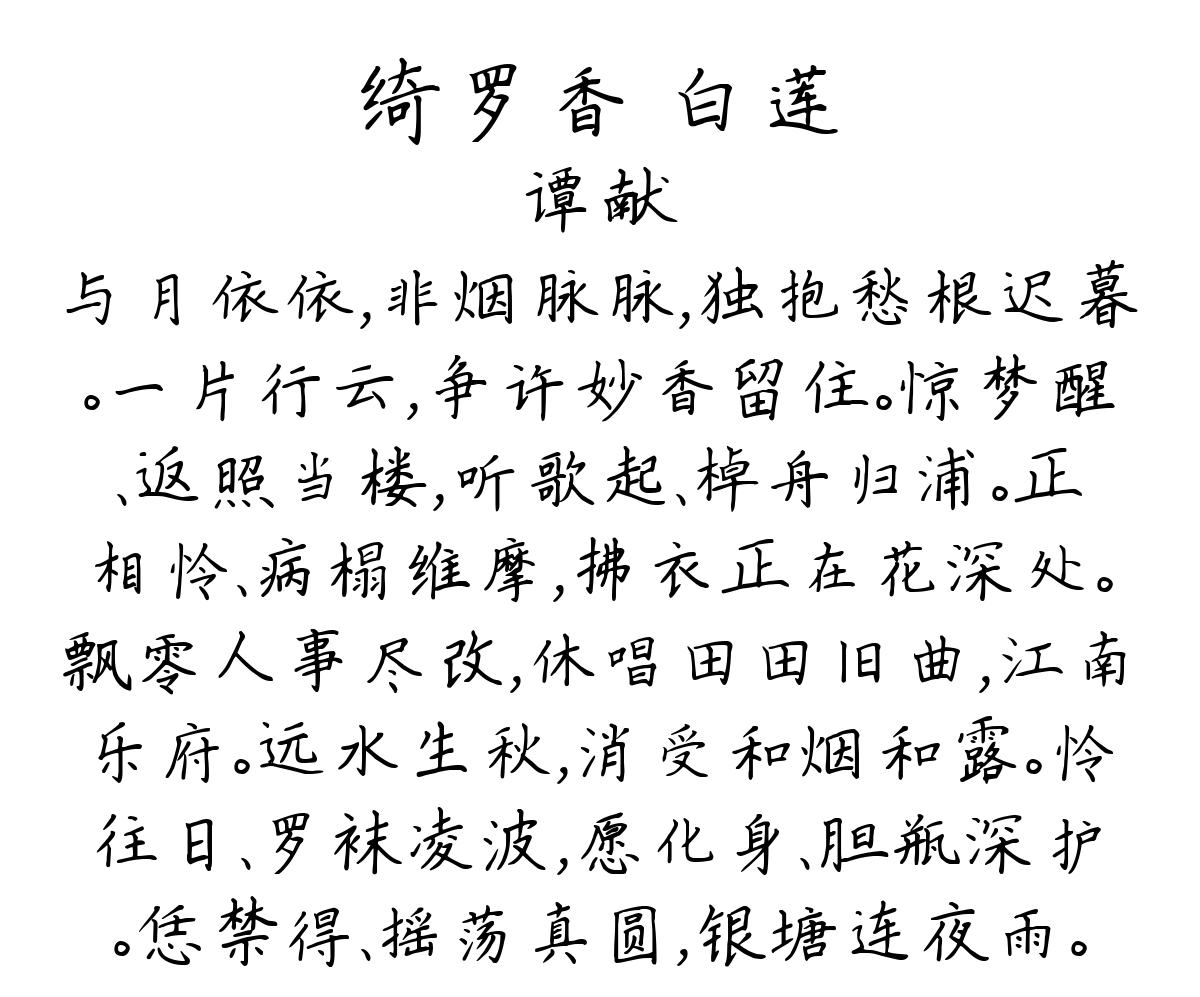 绮罗香 白莲
谭献
与月依依,非烟脉脉,独抱愁根迟暮
。一片行云,争许妙香留住。惊梦醒
、返照当楼,听歌起、棹舟归浦。正
相怜、病榻维摩,拂衣正在花深处。
飘零人事尽改,休唱田田旧曲,江南
乐府。远水生秋,消受和烟和露。怜
往日、罗袜凌波,愿化身、胆瓶深护
。恁禁得、摇荡真圆,银塘连夜雨。